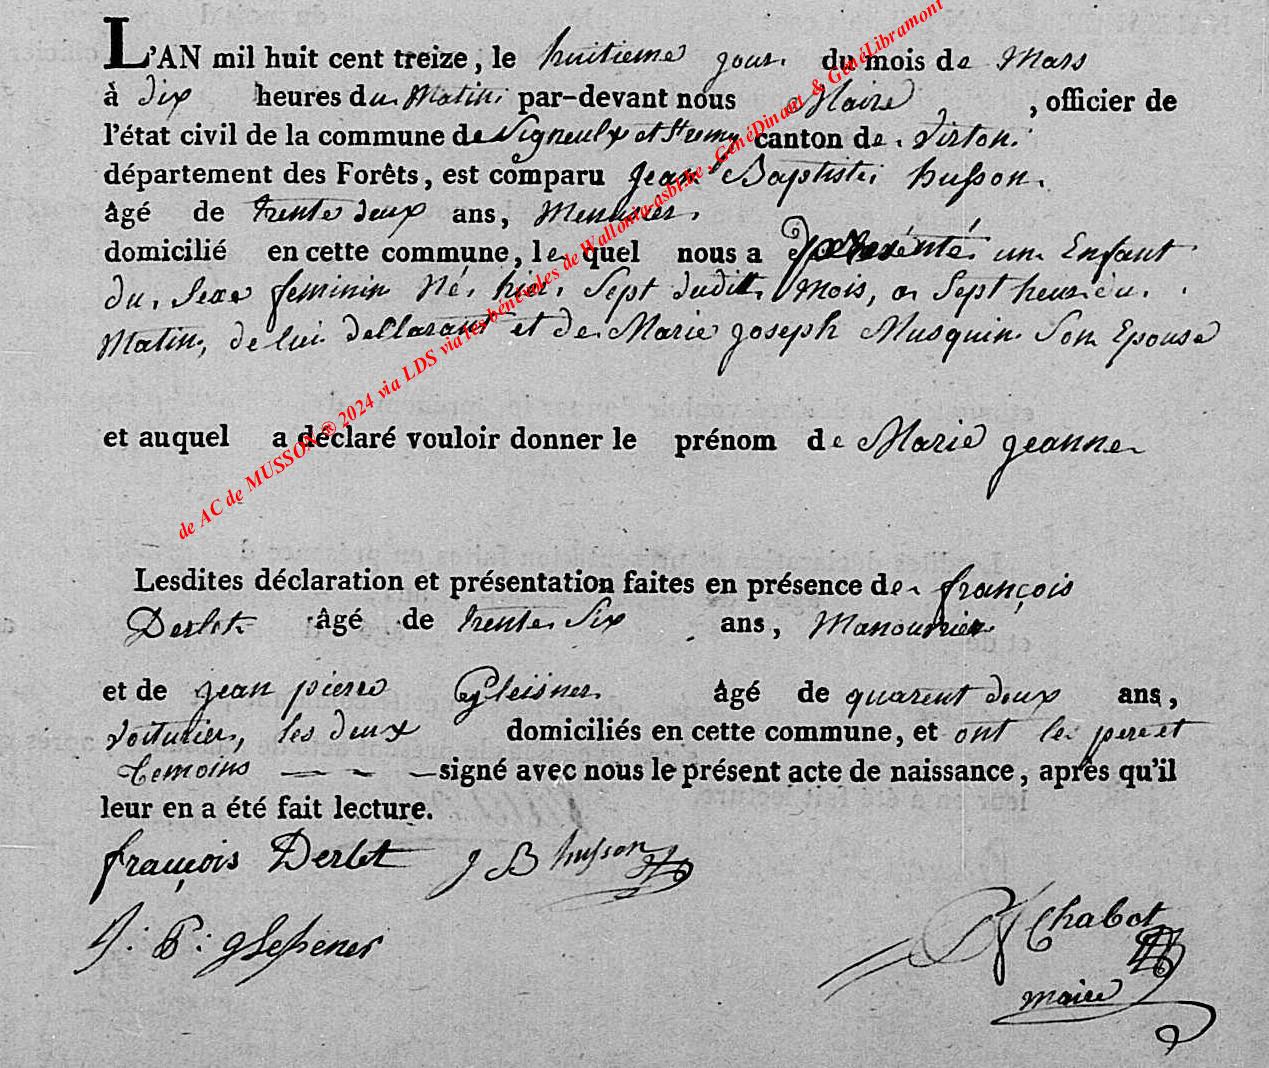 L'AN mil huit cent treize, le huitieme jour du mois de Mars
à dix heures du Matin par-devant nous Maire , officier de
l'état civil de la commune de Signeulx et St remy canton de Virton
département des Forêts, est comparu jean Baptiste husson
âgé de trente deux ans, Meunier
domicilié en cette commune, lequel nous a présenté un Enfant
du Sexe feminin Né hier Sept dudit mois, a Sept heures du
Matin, de lui dellarant et de Marie joseph Musquin Son Epouse
et auquel a déclaré vouloir donner le prénom de Marie jeanne
Lesdites déclaration et présentation faites en présence de françois
Derlet âgé de trente Six ans, Manouvrier
et de jean pierre Gleisner âgé de quarent deux ans,
voiturier, les deux domiciliés en cette commune, et ont les pere et
temoins — signé avec nous le présent acte de naissance, après qu'il
leur en a été fait lecture.
françois Derlet J B husson
J: P: glessener
Chabot
maire
de AC de MUSSON ® 2024 via LDS via les bénévoles de Wallonia-asbl.be , GénéDinant & GénéLibramont